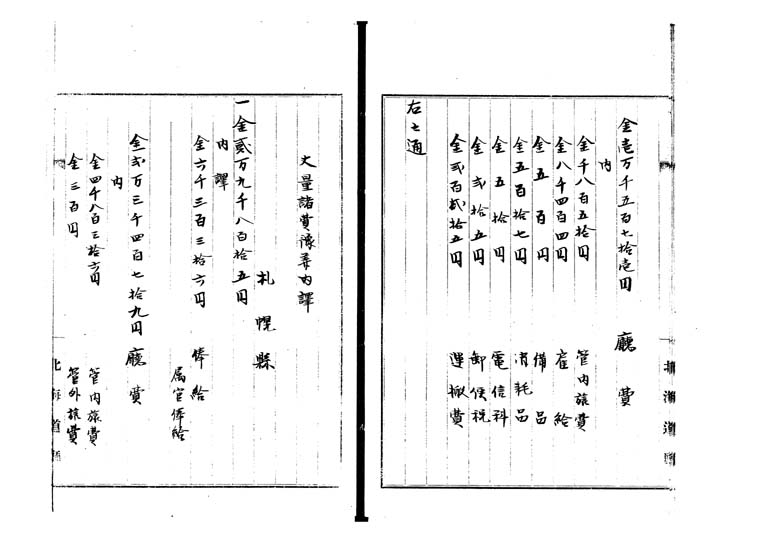 金壱万千五百七拾壱円 廳費
内
金千八百五拾円 管内旅費
金八千四百四円 雇給
金五百円 備品
金五百拾七円 消耗品
金五拾円 電信料
金弐拾五円 郵便税
金弐百弐拾五円 運搬費
右之通
丈量諸費豫算内譯
札幌縣
一金貳万九千八百拾五円
内譯
金六千三百三拾六円 俸給
属官俸給
金弐万三千四百七拾九円 廳費
内
金四千八百三拾六円 管内旅費
金三百円 管外旅費
北海道